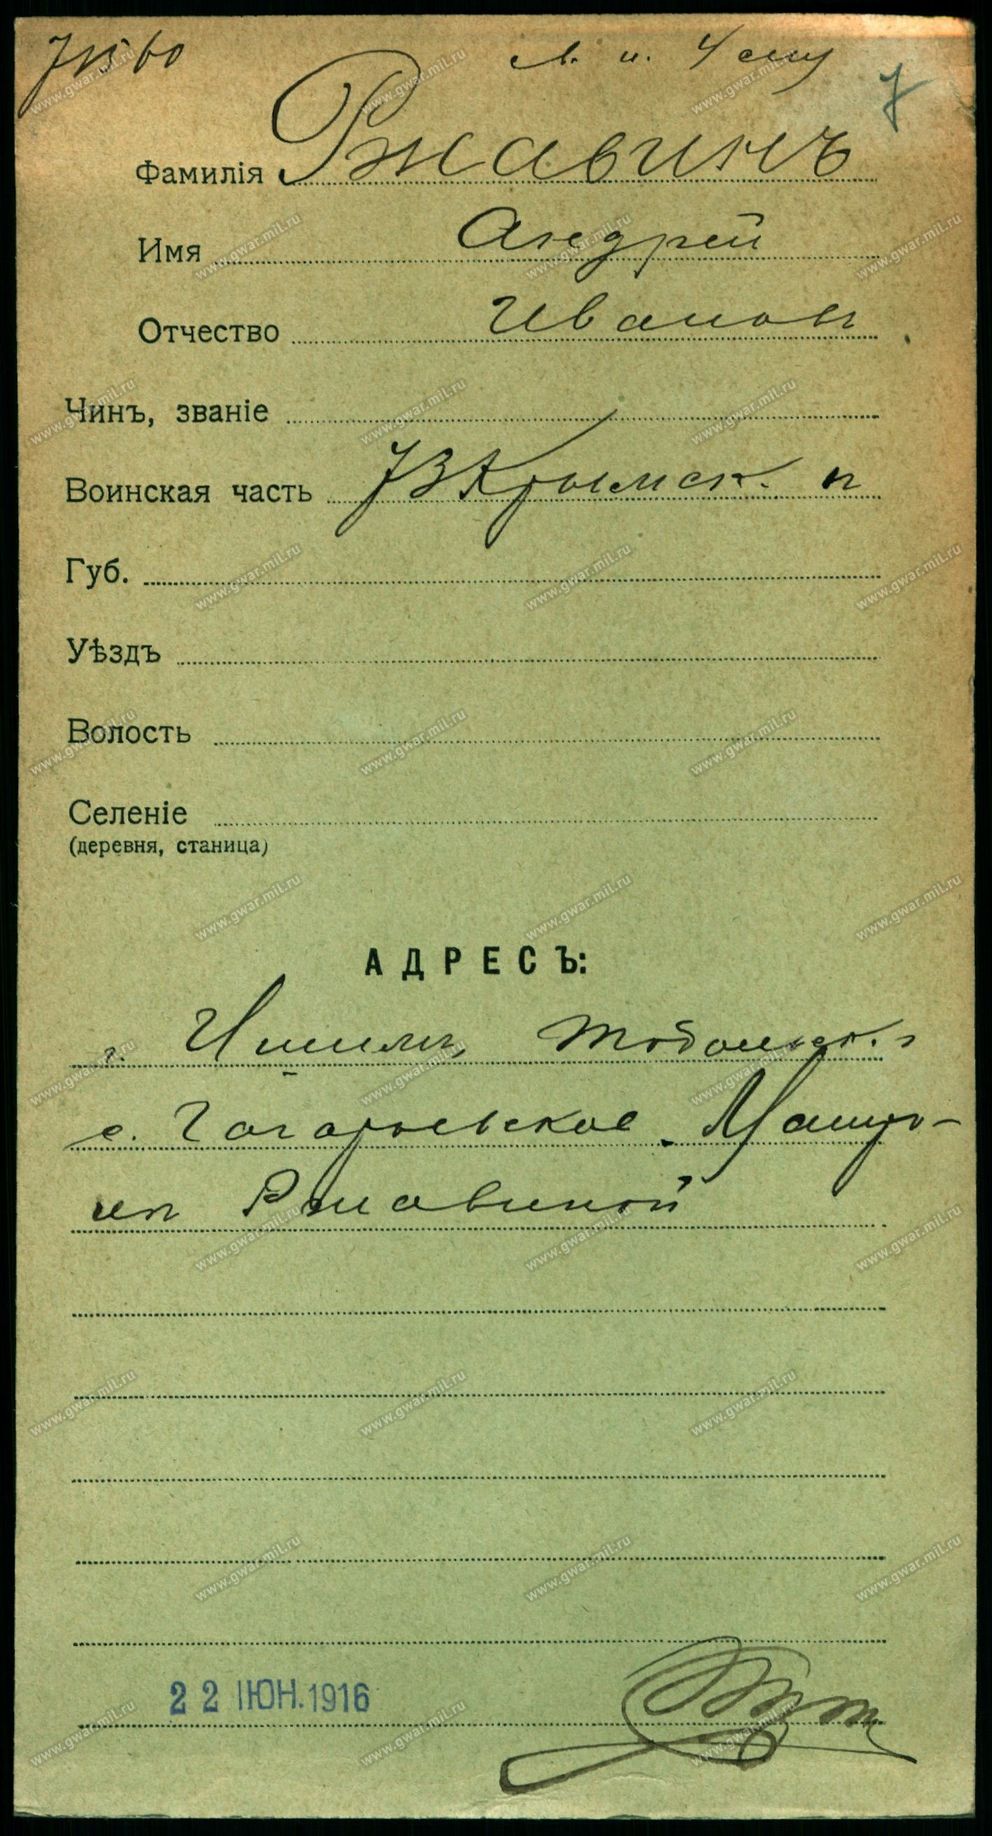 71560
7
Фамилія Ржавинъ
Имя Андрей
Отчество Иванов
Чинъ, званіе
Воинская часть 73 Крымск. п
Губ.
Уѣздъ
Волость
Селеніе
(деревня, станица)
АДРЕСЪ:
г. Ишимъ, Тобольск. г
с. Гагарьевское
Ржавиной
22 ІЮН. 1916
www.gwar.mil.ru